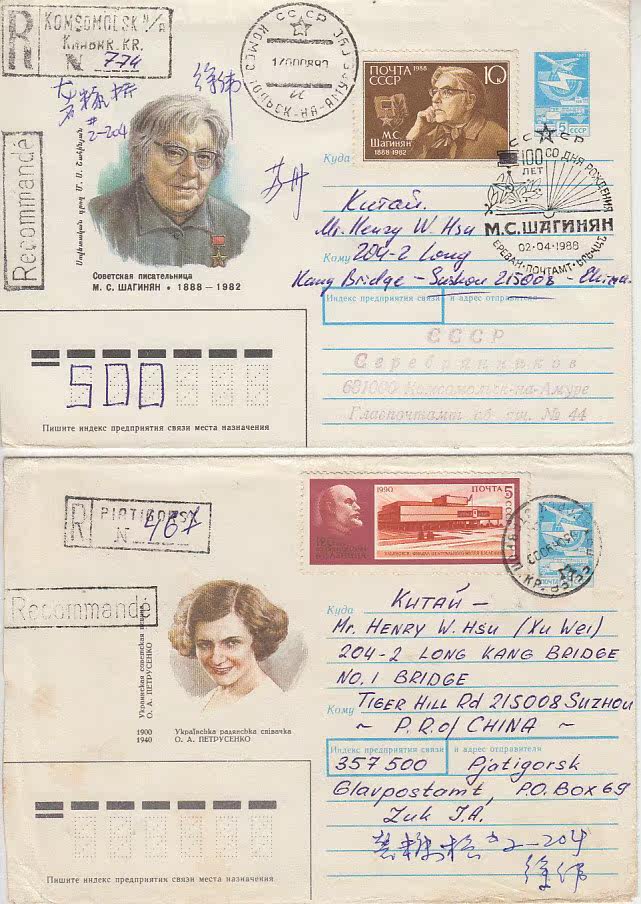 R KOMSOMOLSK N/A
KHABAR. KR.
N 774
СССР
# 2-204
徐伟
苏州
Recommandé
ПОЧТА СССР
1988
10К
М.С.
Шагинян
1888-1982
5к
СССР
СССР
100 ЛЕТ СО ДНЯ РОЖДЕНИЯ
М.С.ШАГИНЯН
02-04-1988
ЕРЕВАН·ПОЧТАМТ
Советская писательница
М. С. ШАГИНЯН • 1888—1982
Куда
Китай.
Mr. Henry W. Hsu
Кому 204-2 Long
Kang Bridge - Suzhou 215008 - China.
Индекс предприятия связи и адрес отправителя
СССР
Серебрянников
681000 Комсомольск-на-Амуре
Главпочтамт аб. ящ. № 44
500
Пишите индекс предприятия связи места назначения
R PIATIGORSK
N 467
Recommandé
1990
ПОЧТА
5к
СССР
Украинская советская певица
О. А. ПЕТРУСЕНКО
1900
1940
Українська радянська співачка
О. А. ПЕТРУСЕНКО
Куда
КИТАЙ -
MR. HENRY W. HSU (XU WEI)
204-2 LONG KANG BRIDGE
NO.1 BRIDGE
Кому TIGER HILL Rd 215008 SUZHOU
~ P.R. of CHINA ~
Индекс предприятия связи и адрес отправителя
357500 Pjatigorsk
Glavpostamt, P.O. Box 69
Zuk J.A.
# 2-204
徐伟
Пишите индекс предприятия связи места назначения